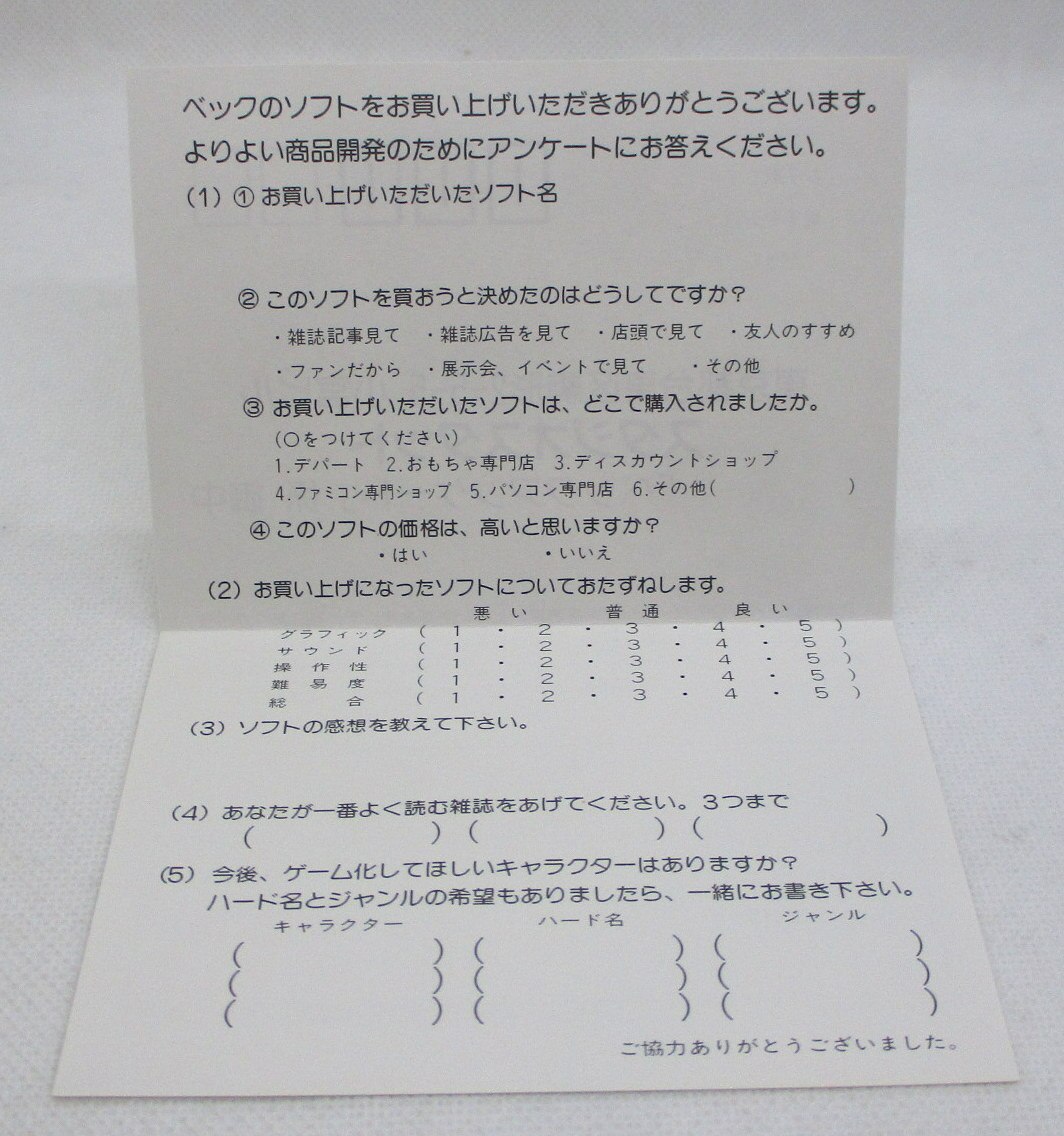 ベックのソフトをお買い上げいただきありがとうございます。
よりよい商品開発のためにアンケートにお答えください。
(1) ① お買い上げいただいたソフト名
② このソフトを買おうと決めたのはどうしてですか？
・雑誌記事見て ・雑誌広告を見て ・店頭で見て ・友人のすすめ
・ファンだから ・展示会、イベントで見て ・その他
③ お買い上げいただいたソフトは、どこで購入されましたか。
(○をつけてください)
1.デパート 2.おもちゃ専門店 3.ディスカウントショップ
4.ファミコン専門ショップ 5.パソコン専門店 6.その他( )
④ このソフトの価格は、高いと思いますか？
・はい ・いいえ
(2) お買い上げになったソフトについておたずねします。
悪い 普通 良い
グラフィック ( 1 ・ 2 ・ 3 ・ 4 ・ 5 )
サウンド ( 1 ・ 2 ・ 3 ・ 4 ・ 5 )
操作性 ( 1 ・ 2 ・ 3 ・ 4 ・ 5 )
難易度 ( 1 ・ 2 ・ 3 ・ 4 ・ 5 )
総合 ( 1 ・ 2 ・ 3 ・ 4 ・ 5 )
(3) ソフトの感想を教えて下さい。
(4) あなたが一番よく読む雑誌をあげてください。3つまで
( ) ( ) ( )
(5) 今後、ゲーム化してほしいキャラクターはありますか？
ハード名とジャンルの希望もありましたら、一緒にお書き下さい。
キャラクター ハード名 ジャンル
( ) ( ) ( )
( ) ( ) ( )
( ) ( ) ( )
ご協力ありがとうございました。